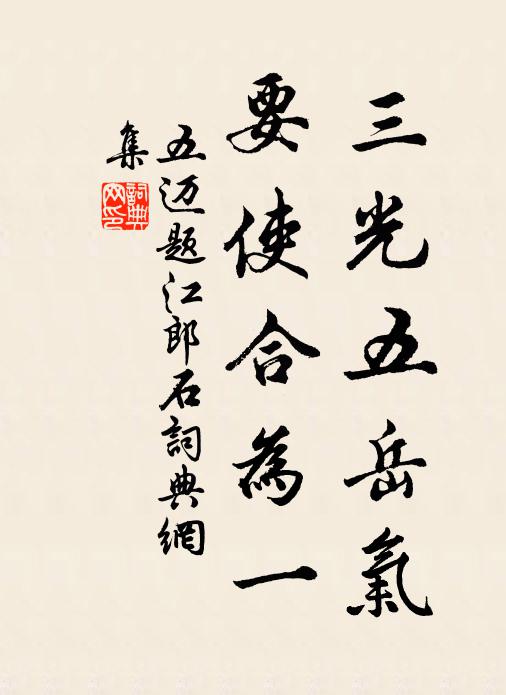 三光五岳氣
要使合為一
五迈题江郎石詞典網
集
詞典
网印